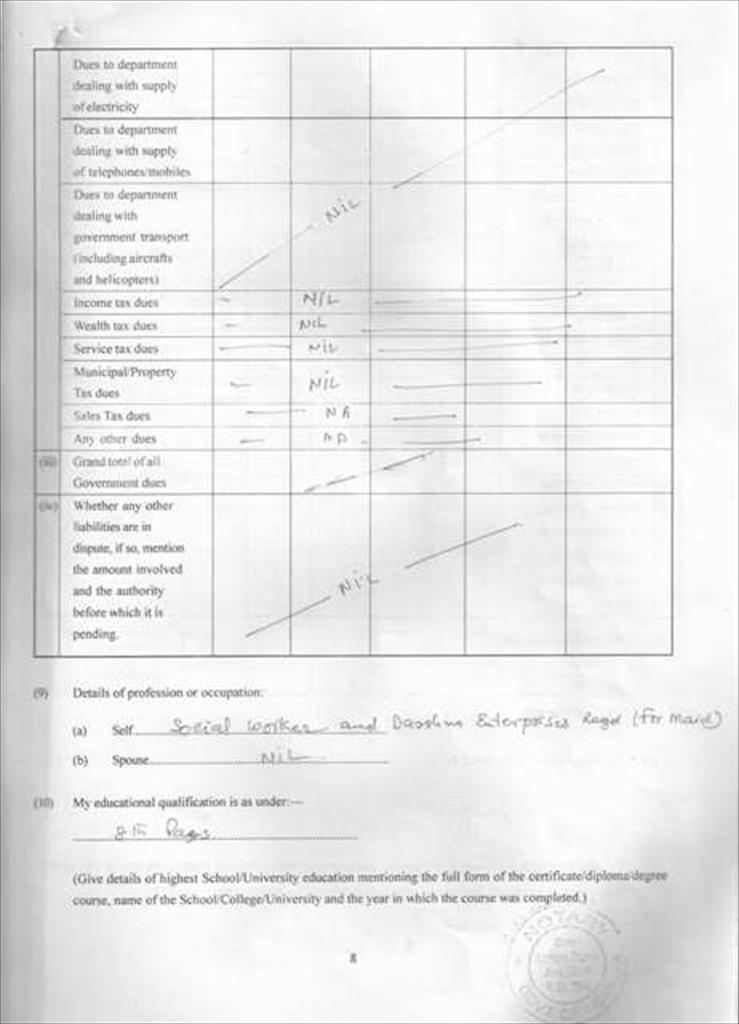 Dues to department
dealing with supply
of electricity
Dues to department
dealing with supply
of telephones/mobiles
Dues to department
dealing with
government transport
(including aircrafts
and helicopters)
NiL
Income tax dues NIL
Wealth tax dues NIL
Service tax dues NIL
Municipal/Property
Tax dues NIL
Sales Tax dues NA
Any other dues
(iii) Grand total of all
Government dues
(iv) Whether any other
liabilities are in
dispute, if so, mention
the amount involved
and the authority
before which it is
pending.
NiL
(9) Details of profession or occupation:
(a) Self Social worker and Enterprises (for maid)
(b) Spouse NiL
(10) My educational qualification is as under:—
8th Pass
(Give details of highest School/University education mentioning the full form of the certificate/diploma/degree
course, name of the School/College/University and the year in which the course was completed.)
8
NOTARY